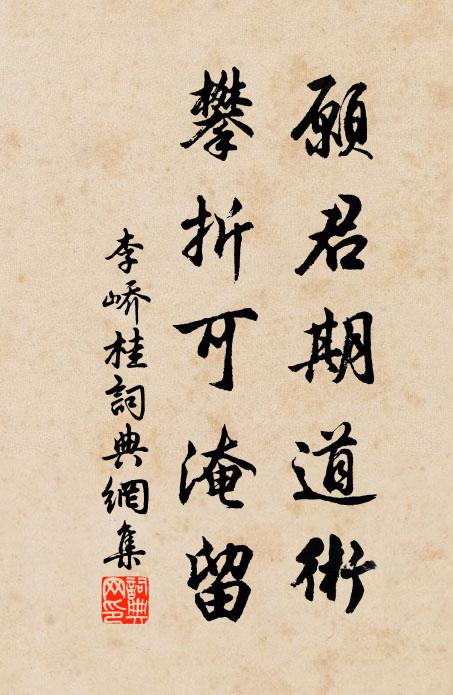 願君期道術
攀折可淹留
李嶠桂詞典網集
詞典
网印